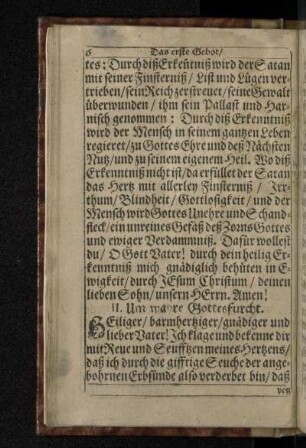 6 Das erste Gebot/
tes: Durch diß Erkentniß wird der Satan
mit seiner Finsterniß / List und Lügen ver-
trieben/ sein Reich zerstreuet/ seine Gewalt
überwunden / ihm sein Pallast und Har-
nisch genommen: Durch diß Erkenntniß
wird der Mensch in seinem gantzen Leben
regieret/ zu Gottes Ehre und deß Nächsten
Nutz/ und zu seinem eigenem Heil. Wo diß
Erkenntniß nicht ist/ da erfüllet der Satan
das Hertz mit allerley Finsterniß / Irr-
thum/ Blindheit / Gottlosigkeit / und der
Mensch wird Gottes Unehre und Schand-
fleck/ ein unreines Gefäß deß Zorns Gottes
und ewiger Verdammniß. Dafür wollest
du / O Gott Vater! durch dein heilig Er-
kenntniß mich gnädiglich behüten in E-
wigkeit/ durch JEsum Christum / deinen
lieben Sohn/ unsern HErrn. Amen!
II. Um wahre Gottesfurcht.
HEiliger/ barmhertziger/ gnädiger und
lieber Vater! Ich klage und bekenne dir
mit Reue und Seufftzen meines Hertzens/
daß ich durch die gifftige Seuche der ange-
bohrnen Erbsünde also verderbet bin/ daß
von